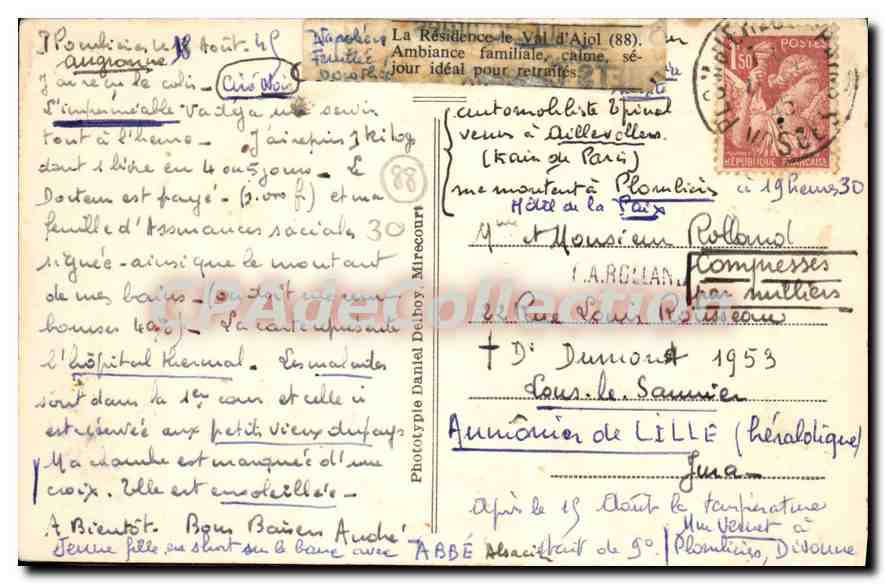 Plombières le 18 Août 45
augronne
J'ai reçu le colis - Ciré Noir
L'imperméable va déjà me servir
tout à l'heure - J'ai repris 3 kilog
dont 1 livre en 4 ou 5 jours - Le
Docteur est payé - (3.000 fr) et ma
feuille d'Assurances sociales 30
signée - ainsi que le montant
de mes bains - (on doit me rem
bourser 490) - La carte représente
l'hôpital thermal - Les malades
sont dans la 1ère cour et celle ci
est réservée aux petits vieux du pays
Ma chambre est marquée d'une
croix. Elle est ensoleillée -
A Bientôt. Bons Baisers André
Jeune fille en short sur le banc avec ABBÉ Alsacien
88
Phototypie Daniel Delboy, Mirecourt
Napoléon
La Résidence le Val d'Ajol (88).
Ambiance familiale, calme, sé-
jour idéal pour retraités
POSTES
1F50
RÉPUBLIQUE FRANÇAISE
VOSGES
automobiliste Epinal
venus à Aillevillers
(train de Paris)
me montent à Plombières à 19 heures 30
Hôtel de la Paix
Mme et Monsieur Rolland
A. ROLLAN
Compresses
par milliers
22 Rue Louis Rousseau
† Dr Dumont 1953
Lons-le-Saunier
Aumônier de LILLE (héraldique)
Jura
Après le 15 Août la température
était de 9°
Mme Vernet à
Plombières, Divonne
CPADeCollection